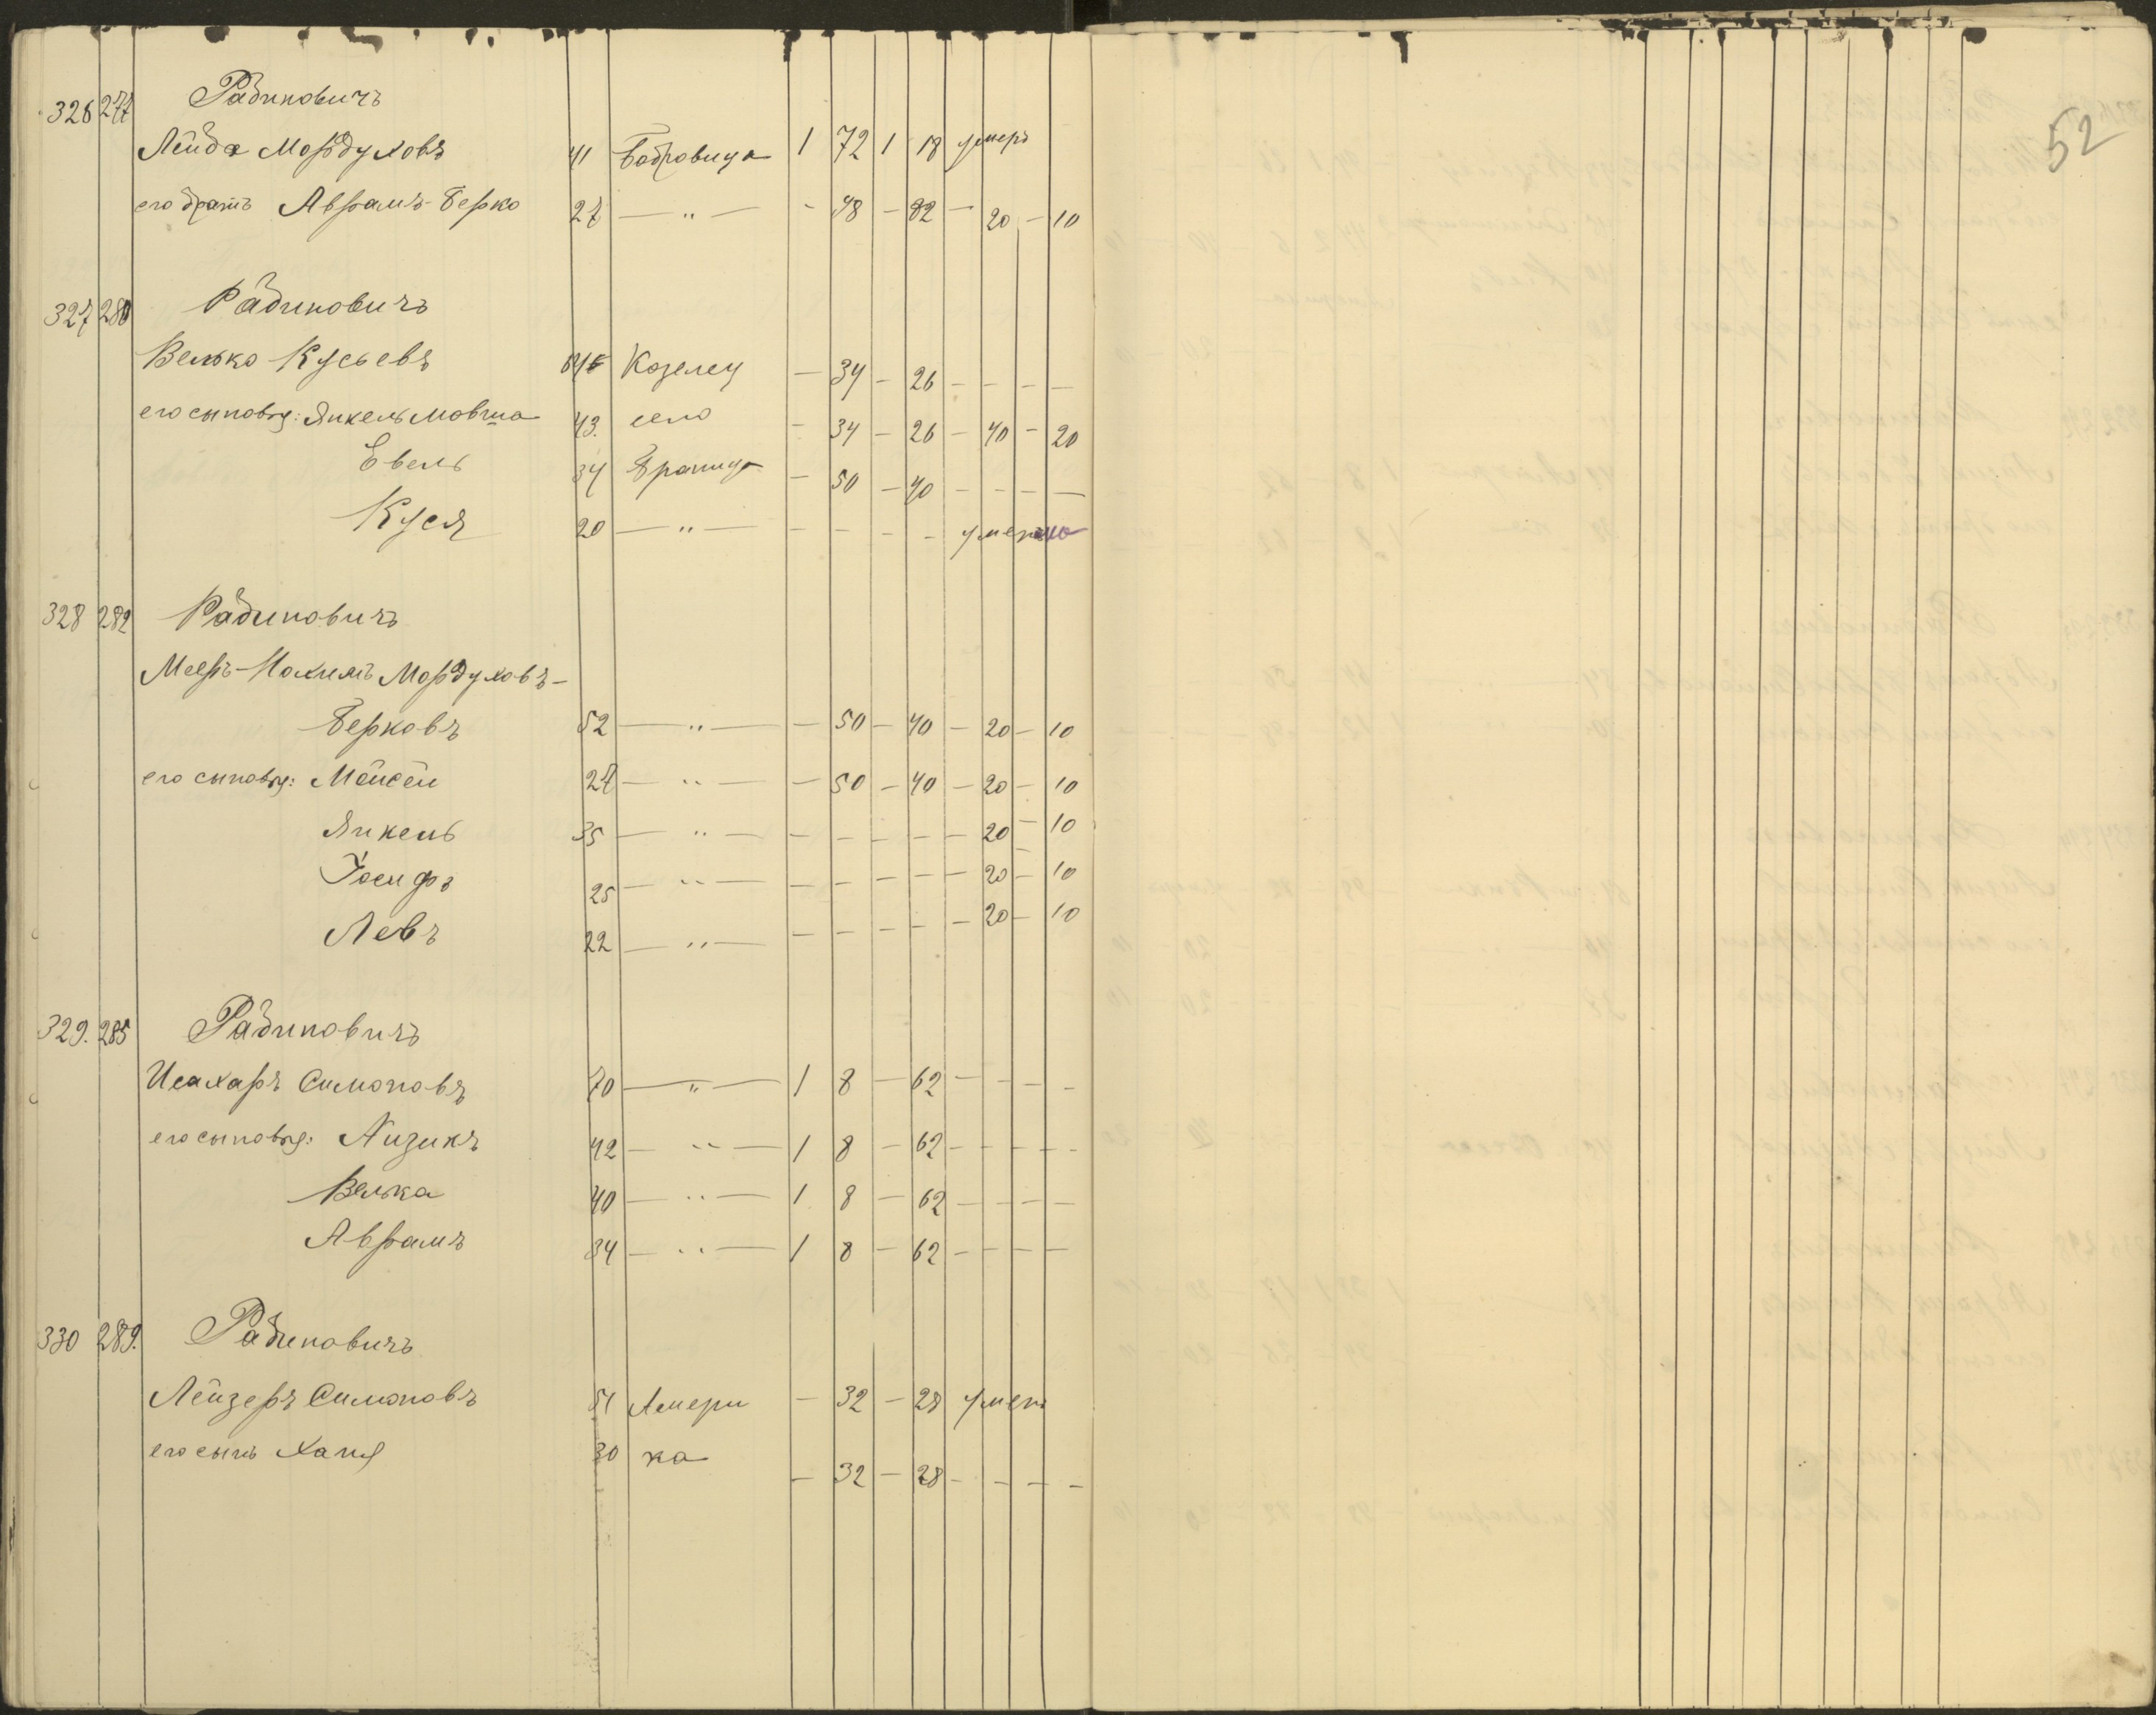 52
326 277 Рабиновичъ
Лейба Мордуховъ 41 Бобровица 1 72 1 18 умеръ
его братъ Аврамъ-Берко 27 — " — - 48 - 82 - 20 - 10
327 280 Рабиновичъ
Велько Кусьевъ Козелец — 34 — 26 — — — —
его сыновья: Янкель Мовша 43. село — 34 — 26 — 40 — 20
Евель 34 Браница — 50 — 40 — — — —
Куся 20 — " — — — — —
328 282 Рабиновичъ
Мееръ-Нохимъ Мордуховъ-
Берковъ 52 — " — — 50 — 40 — 20 — 10
его сыновья: Мойсей 27 — " — — 50 — 40 — 20 — 10
Янкель 35 — " — — — — — — 20 — 10
Іосифъ 25 — " — — — — — — 20 — 10
Левъ 22 — " — — — — — — 20 — 10
329. 285 Рабиновичъ
Исахаръ Симоновъ 70 — " — 1 8 — 62 — — — —
его сыновья: Айзикъ 42 — " — 1 8 — 62 — — — —
Велька 40 — " — 1 8 — 62 — — — —
Аврамъ 34 — " — 1 8 — 62 — — — —
330 289. Рабиновичъ
Лейзеръ Симоновъ 51 Амери — 32 — 28 умеръ
его сынъ Хапя 30 ка — 32 — 28 — — — —